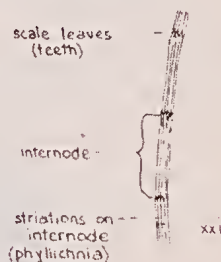 scale leaves
(teeth)
internode
striations on
internode
(phyllichnia)